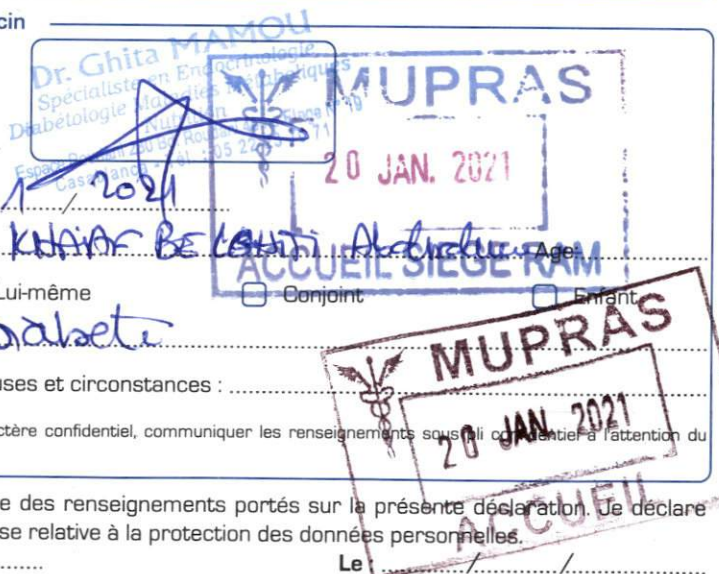 cin
Dr. Ghita MAMOU
Spécialiste en Endocrinologie
Diabétologie Maladies Métaboliques
Nutrition
Casablanca - Tél : 05 22
MUPRAS
20 JAN. 2021
ACCUEIL SIEGE RAM
1/2021
KHAIAF BELGHITI Age:
Lui-même Conjoint Enfant
MUPRAS
20 JAN. 2021
ACCUEIL
uses et circonstances :
ctère confidentiel, communiquer les renseignements sous pli confidentiel à l'attention du
e des renseignements portés sur la présente déclaration. Je déclare
se relative à la protection des données personnelles.
Le : / /